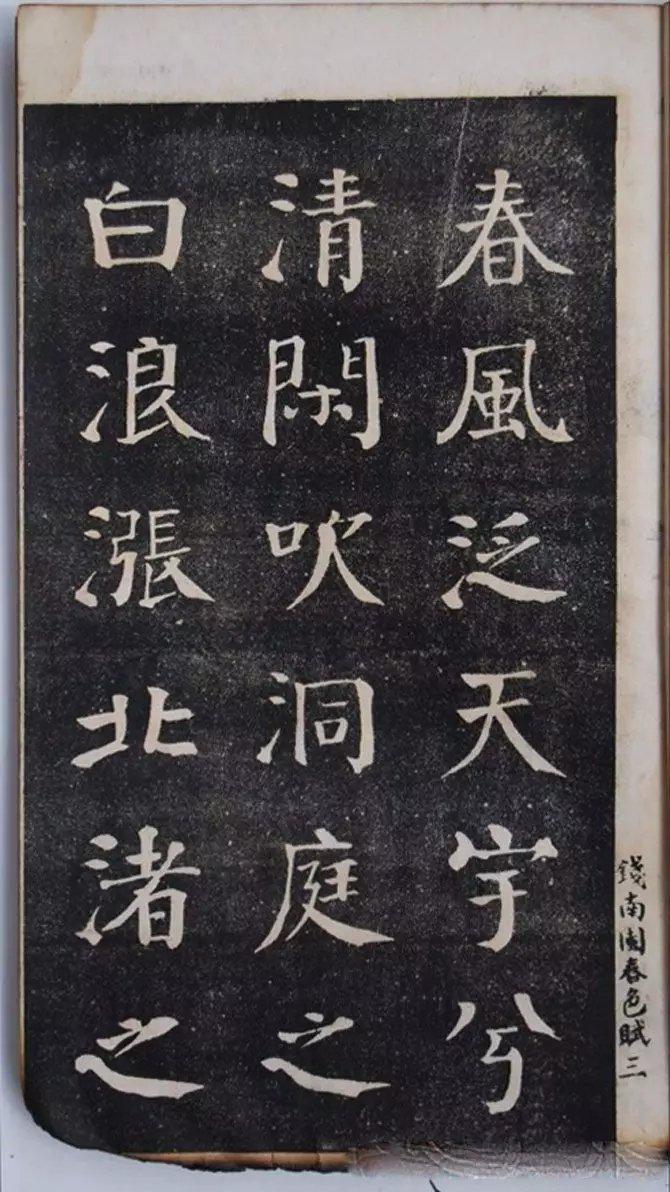 春風泛天宇兮
清閑吹洞庭之
白浪漲北渚之
錢南園春色賦三